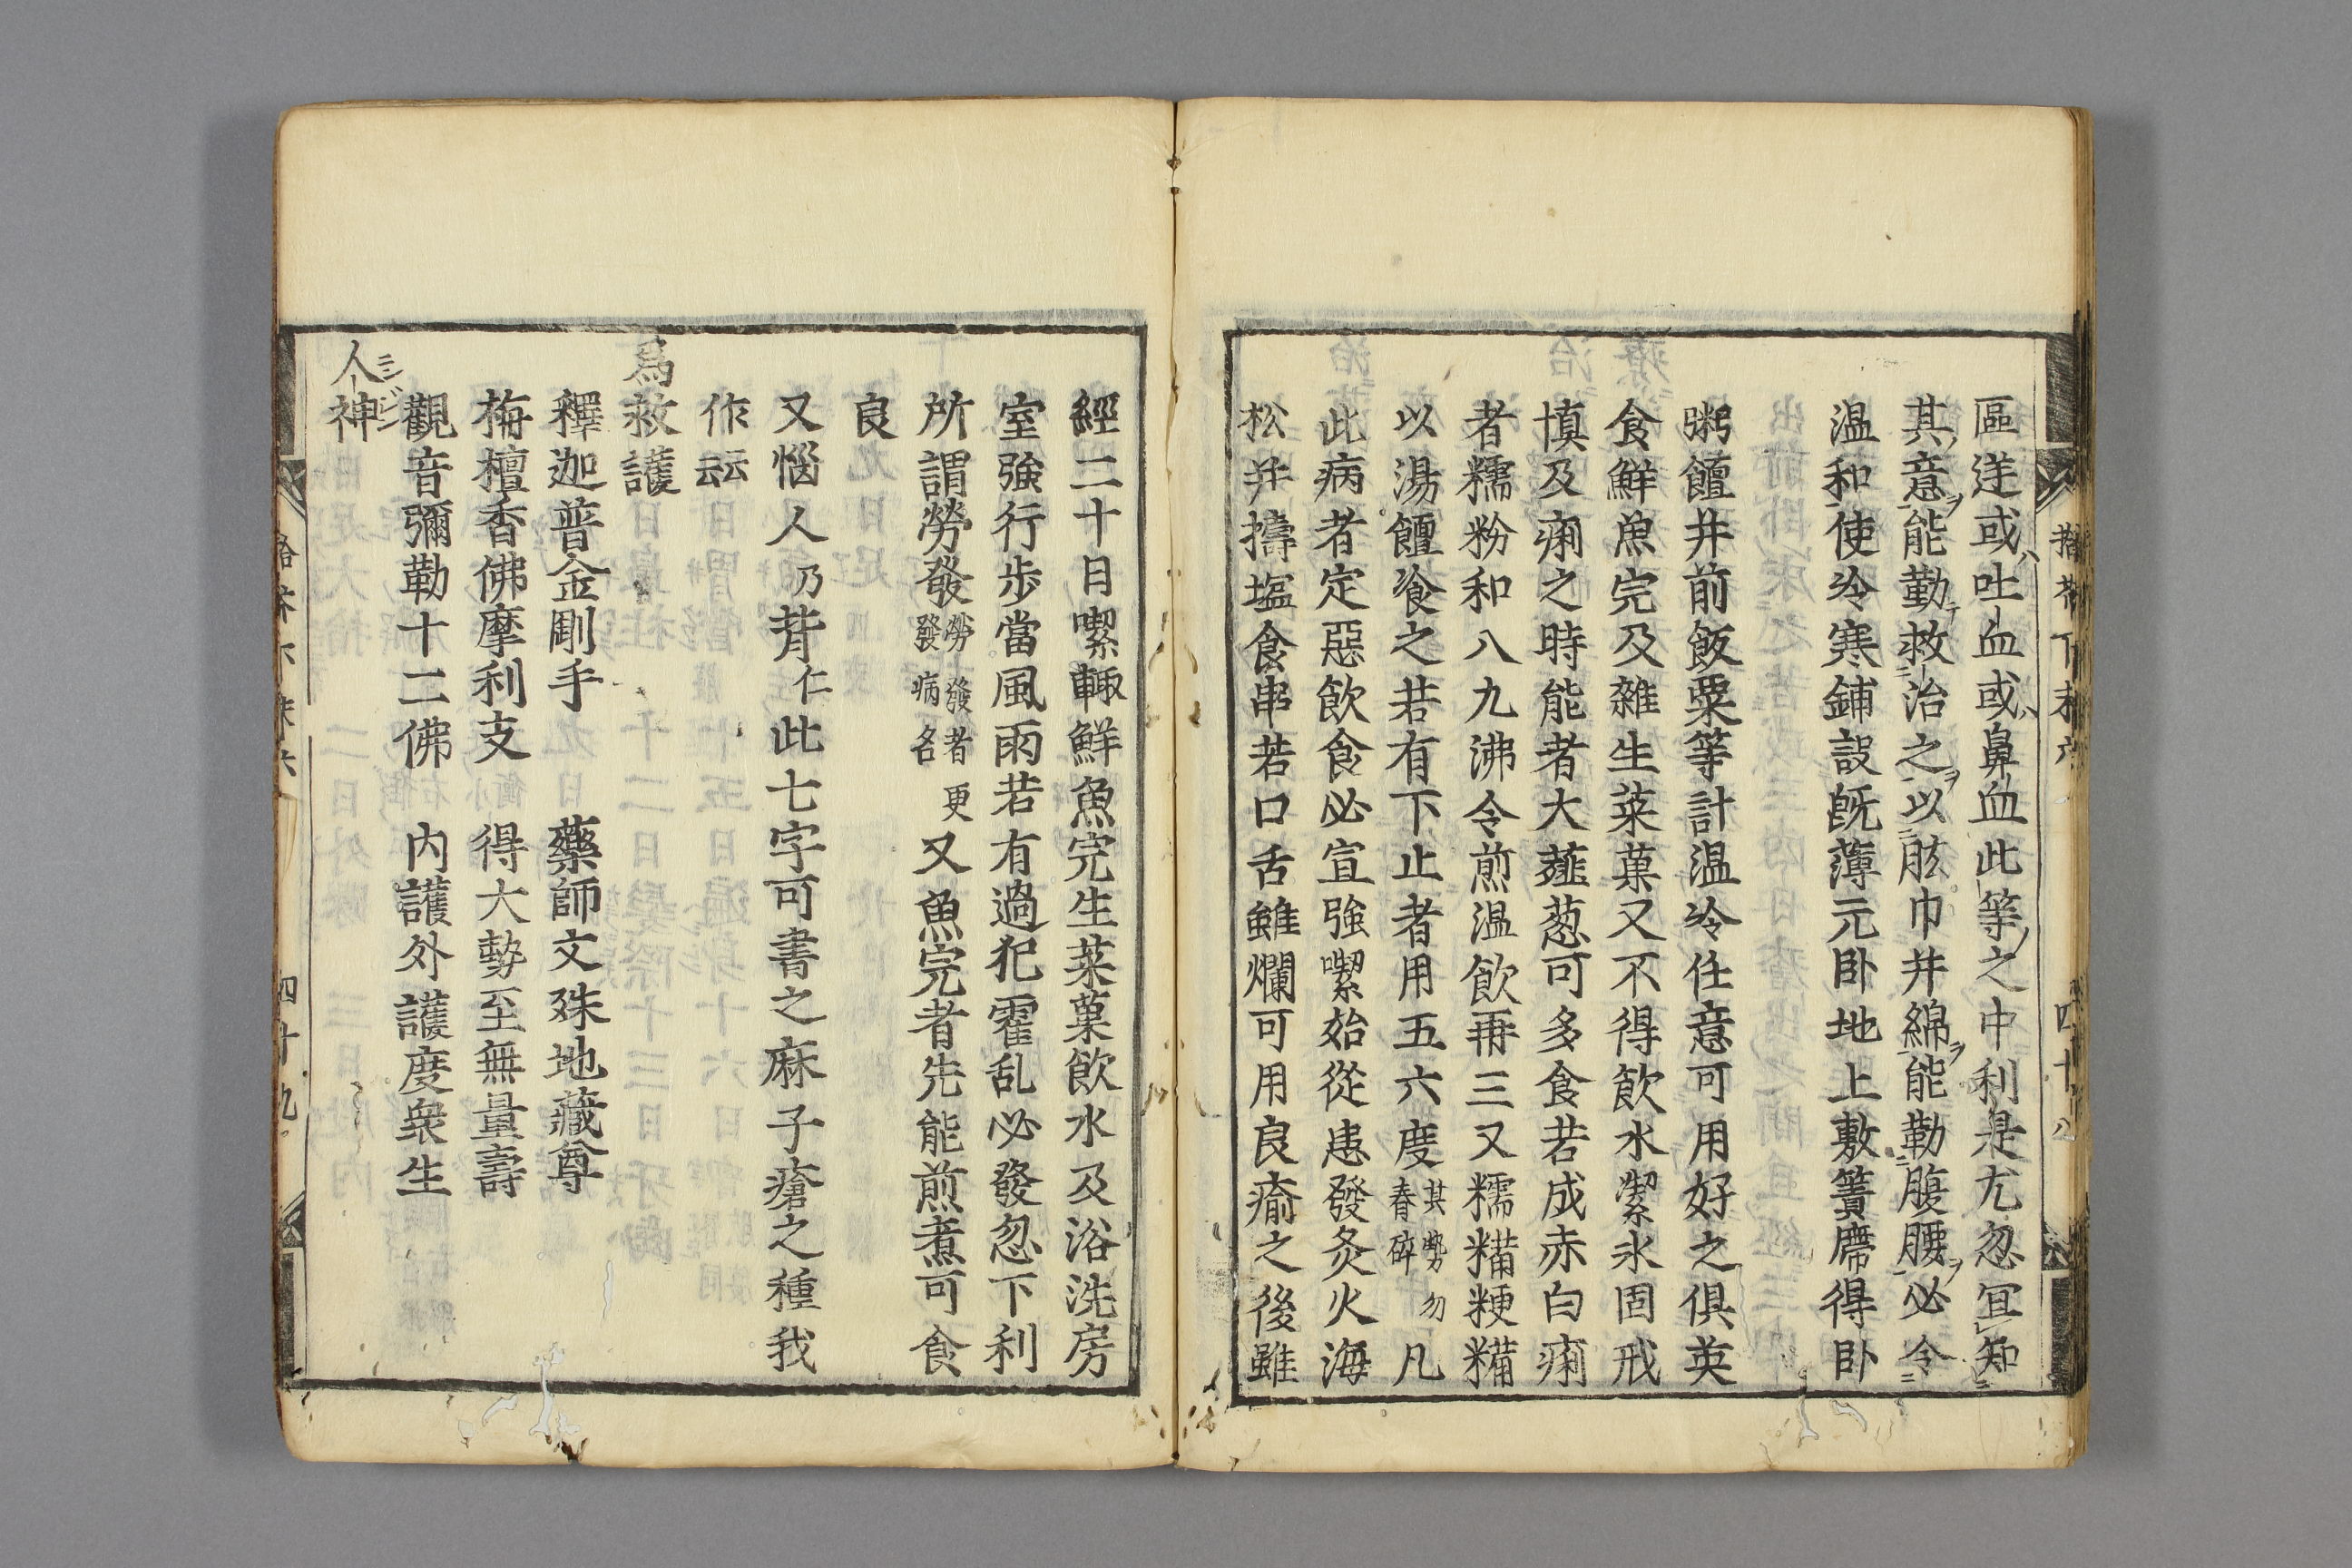 區迸或吐血或鼻血此等之中利是尤忽冝知
其意能勤救治之以胘巾并綿能勒腹腰必令
温和使冷寒鋪設既薄元臥地上敷簀席得臥
粥饘并前飯粟等計温冷任意可用好之倶英
食鮮魚宍及雜生菜菓又不得飲水潔氷固戒
慎及痢之時能者大薤葱可多食若成赤白痢
者糯粉和八九沸令煎温飲再三又糯糒粳糒
以湯饘飡之若有下止者用五六度其勢勿舂碎凡
此病者定惡飲食必宜強喫始從患發灸火海
松并擣塩食串若口舌雖爛可用良癒之後雖
經二十日喫輙鮮魚宍生菜菓飲水及浴洗房
室強行歩當風雨若有過犯霍乱必發忽下利
所謂勞發勞發者更發病名又魚宍者先能煎煮可食
良
又惱人乃背仁此七字可書之麻子瘡之種我
作云云
爲救護
釋迦普金剛手 藥師文殊地藏尊
栴檀香佛摩利支 得大勢至無量壽
觀音彌勒十二佛 内護外護度衆生
人神